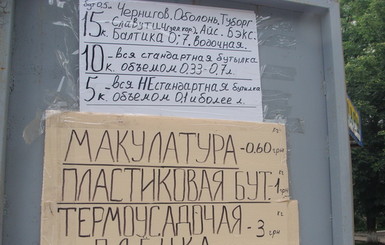 бут 0,5 л
15 к. Чернигов, Оболонь, Туборг
Славутич (зел. кор), Айс. Бэкс.
Балтика 0,7, водочная.
10 к. - вся стандартная бутылка
с объемом 0,33-0,7 л
5 к. - вся НЕстандартная бутылка
с объемом 0,1 и более л.
МАКУЛАТУРА - 0,60 грн
ПЛАСТИКОВАЯ БУТ - 1 грн
ТЕРМОУСАДОЧНАЯ - 3 грн
ПЛЕНКА